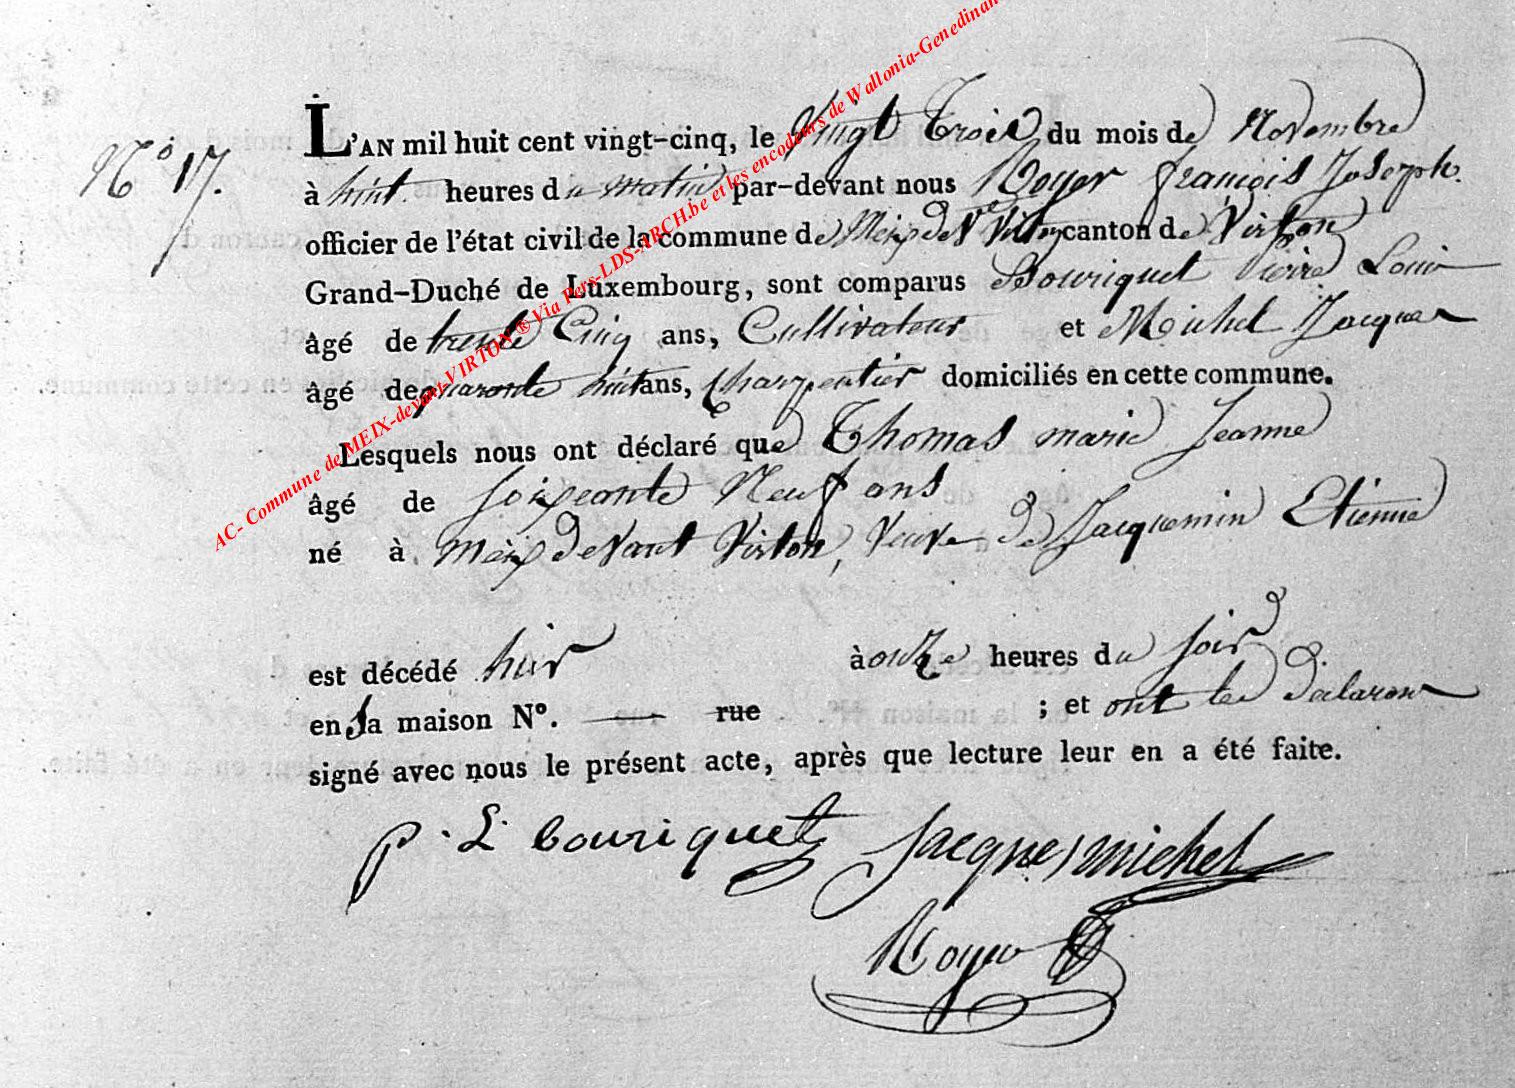 N° 17.
L'AN mil huit cent vingt-cinq, le Vingt Trois du mois de Novembre
à huit heures du matin par-devant nous Royer françois Joseph.
officier de l'état civil de la commune de Meix devt Virton canton de Virton
Grand-Duché de Luxembourg, sont comparus Bouriquet Pierre Louis
âgé de trente Cinq ans, Cultivateur et Michel Jacques
âgé de quaronte huit ans, Charpentier domiciliés en cette commune.
Lesquels nous ont déclaré que Thomas marie Jeanne
âgé de soixeante Neuf ans
né à Meix devant Virton, Veuve de Jacquemin Etienne
est décédé hier à onze heures du soir
en Sa maison N°. — rue ; et ont les
signé avec nous le présent acte, après que lecture leur en a été faite.
p. L. bouriquet Jacques michel
Royer
AC- Commune de MEIX-devant-VIRTON ® Via Pers-LDS-ARCH.be et les encodeurs de Wallonia-Genedinan